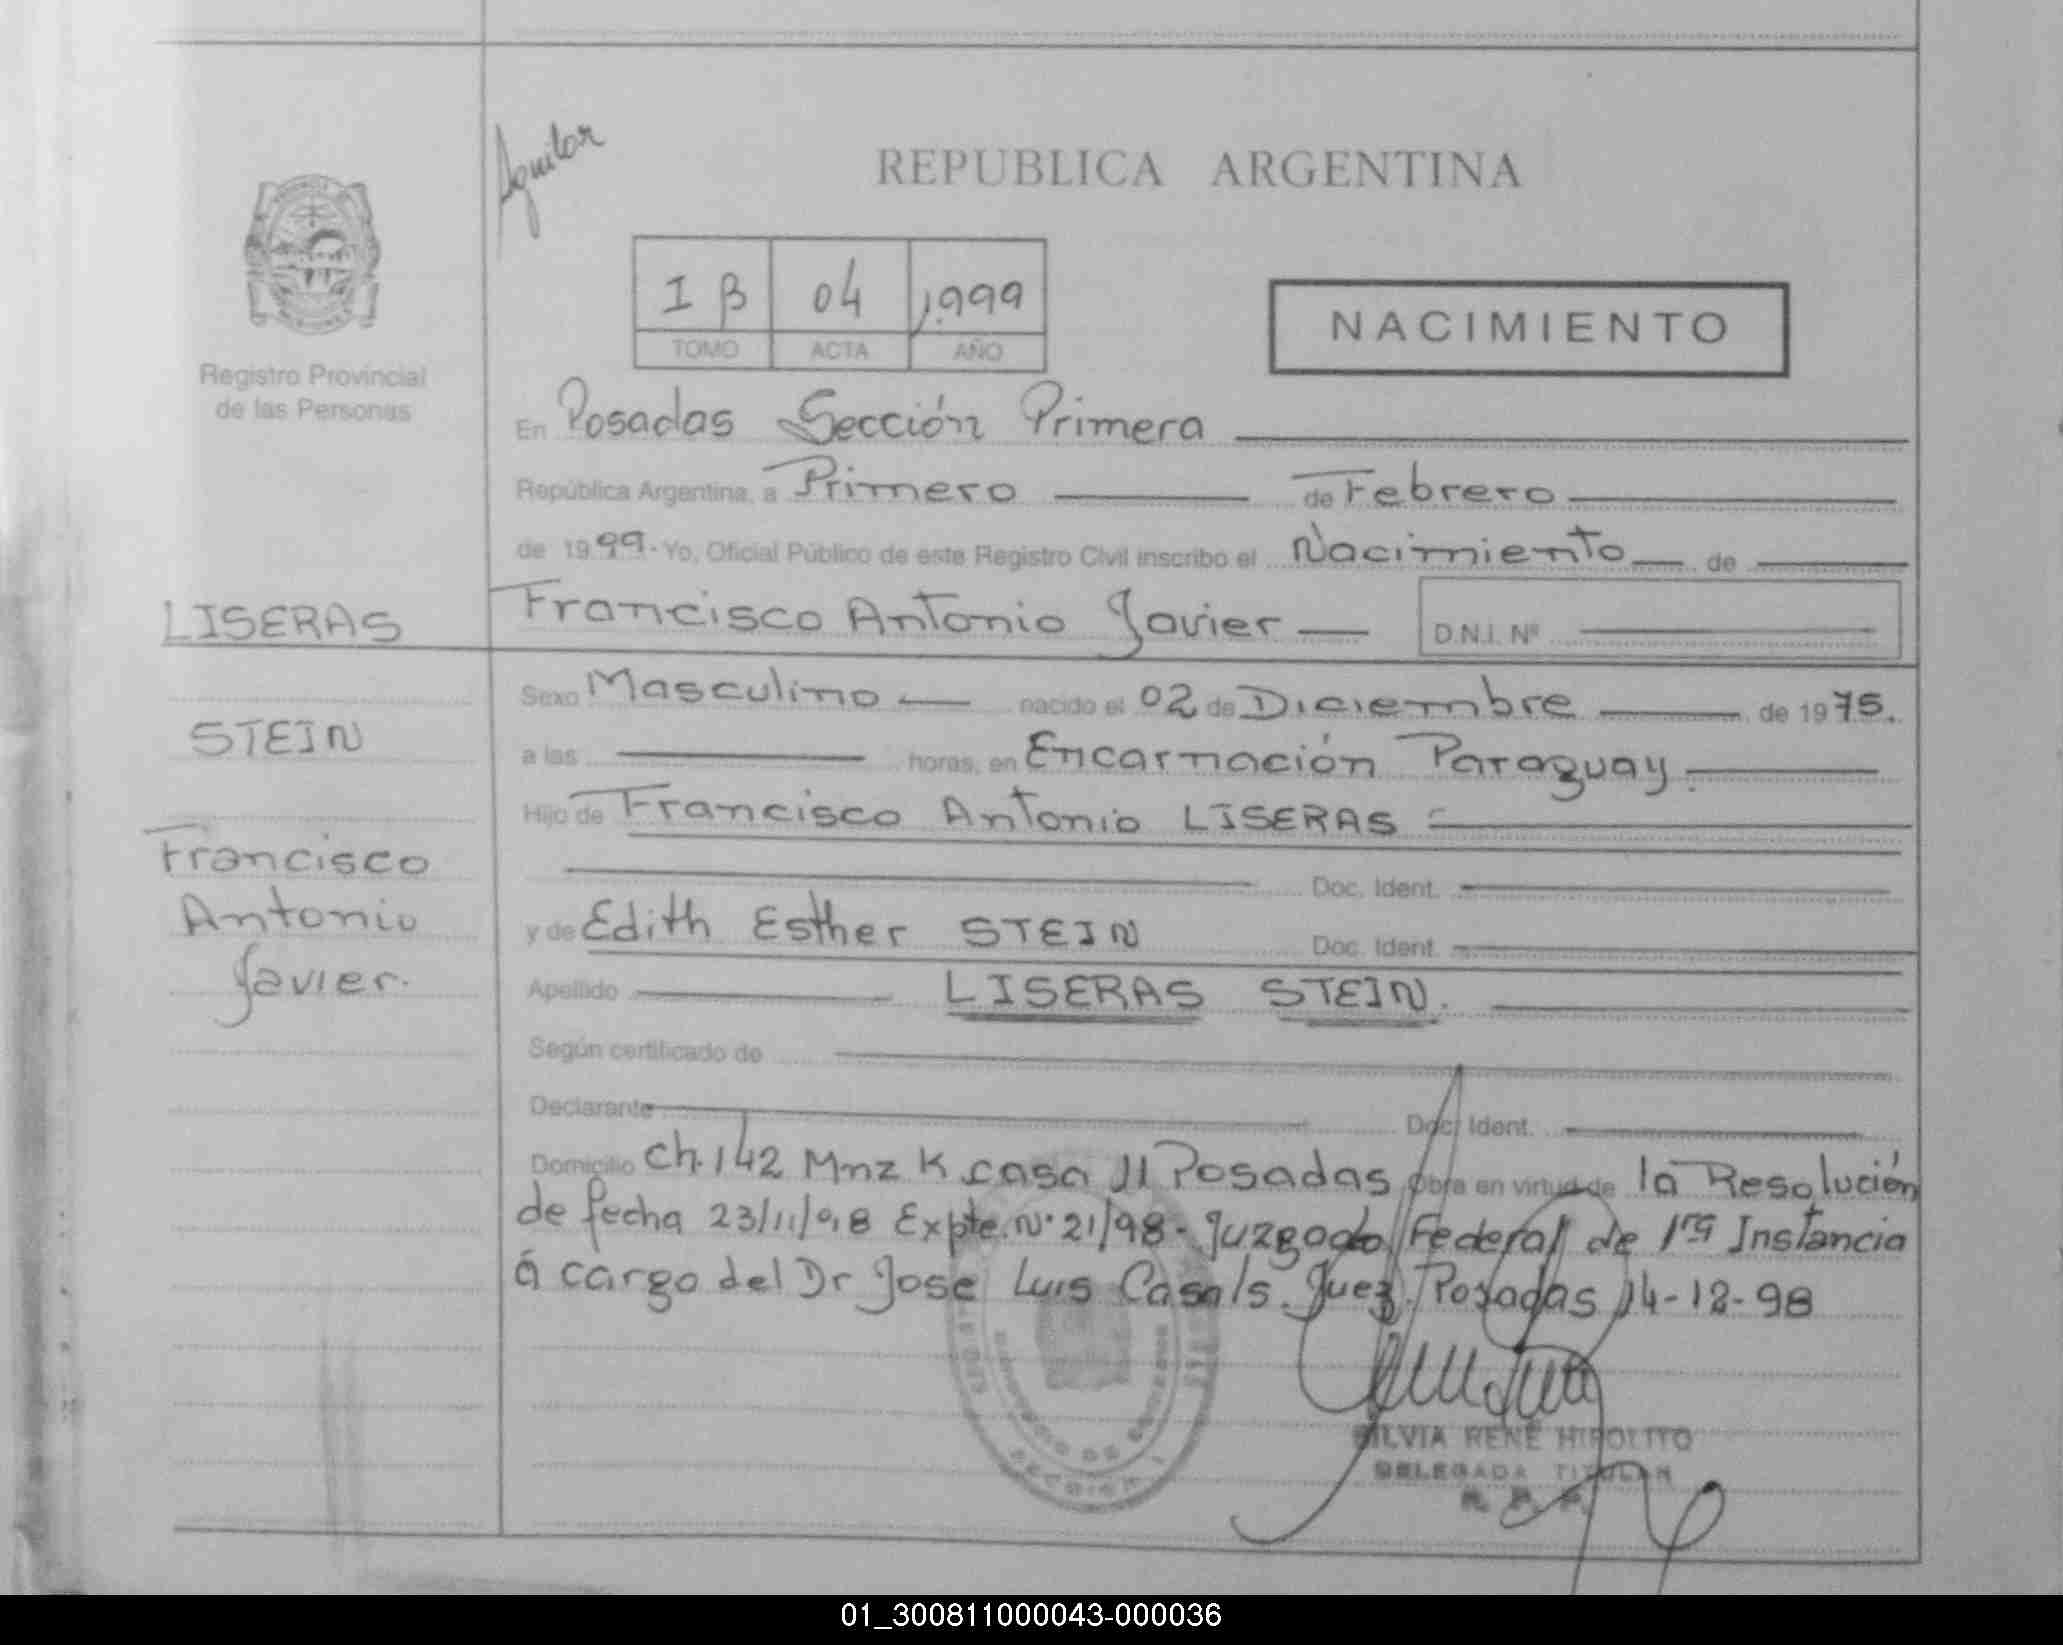 Aguilar
REPUBLICA ARGENTINA
I B 04 1.999
TOMO ACTA AÑO
NACIMIENTO
Registro Provincial
de las Personas
En Posadas Sección Primera
República Argentina, a Primero de Febrero
de 1999. Yo, Oficial Público de este Registro Civil inscribo el Nacimiento de
LISERAS
Francisco Antonio Javier D.N.I. Nº
Sexo Masculino nacido el 02 de Diciembre de 1975.
STEIN
a las horas, en Encarnación Paraguay.
Hijo de Francisco Antonio LISERAS
Francisco
Doc. Ident.
Antonio
y de Edith Esther STEIN Doc. Ident.
Javier.
Apellido LISERAS STEIN.
Según certificado de
Declarante Doc. Ident.
Domicilio Ch. 142 Mnz K casa 11 Posadas Obra en virtud de la Resolución
de fecha 23/11/98 Expte. Nº 21/98 - Juzgado Federal de 1ra Instancia
á cargo del Dr Jose Luis Casals. Juez. Posadas 14-12-98
SILVIA RENE HIPOLITO
DELEGADA TITULAR
01_300811000043-000036